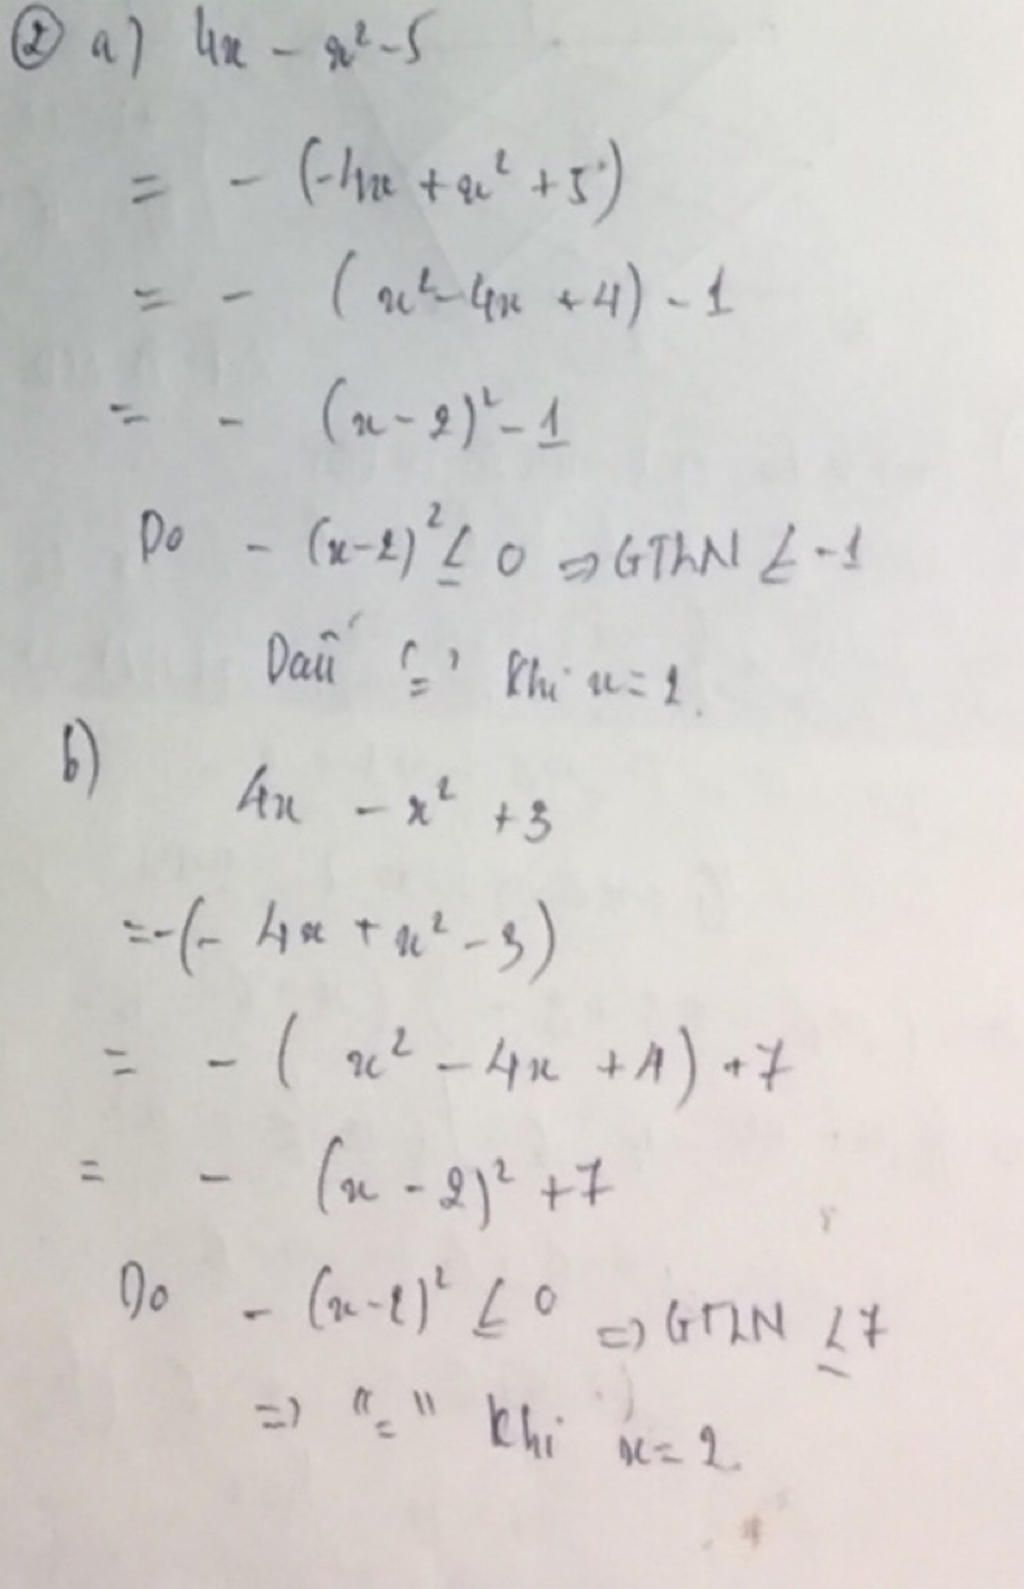 ② a) 4x - x² - 5
= - (-4x + x² + 5)
= - (x² - 4x + 4) - 1
= - (x - 2)² - 1
Do - (x - 2)² ≤ 0 ⇒ GTLN ≤ -1
Dấu "=" khi x = 2.
b)
4x - x² + 3
= -(- 4x + x² - 3)
= - ( x² - 4x + 4) + 7
= - (x - 2)² + 7
Do - (x - 2)² ≤ 0 ⇒ GTLN ≤ 7
⇒ "=" khi x = 2.